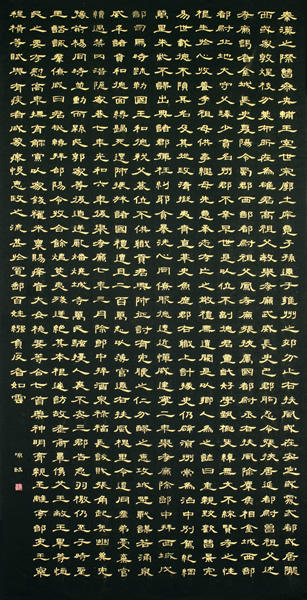 秦漢之際曹參夾輔王室世宗廓土斥竟子孫遷于雍州之郊分止右扶風或在安定或處武都或居隴
西或家敦煌枝分葉布所在為雄君高祖父敏舉孝廉武威長史巴郡朐忍令張掖居延都尉曾祖父述
孝廉謁者金城長史夏陽令蜀郡西部都尉祖父鳳孝廉張掖屬國都尉丞右扶風隃麋侯相金城西部
都尉北地太守父琫少貫名州郡不幸早世是以位不副德君童齔好學甄極毖緯無文不綜賢孝之性
根生於心收養季祖母供事繼母先意承志存亡之敬禮無遺闕是以鄉人為之諺曰重親致歡曹景完
易世載德不隕其名及其從政清擬夷齊直慕史魚歷郡右職上計掾史仍辟涼州常為治中別駕紀綱
萬里朱紫不謬出典諸郡彈枉糾邪貪暴洗心同僚服德遠近憚威建寧二年舉孝廉除郎中拜西域戊
部司馬時疏勒國王和德弒父篡位不供職貢君興師征討有吮膿之仁分醪之惠攻城野戰謀若涌泉
威牟諸賁和德面縛歸死還師振旅諸國禮遺且二百萬悉以簿官遷右扶風槐里令遭同產弟憂棄官
續遇禁冈潛隱家巷七年光和六年復舉孝廉七年三月除郎中拜酒泉祿福長訞賊張角起兵幽冀兗
豫荊楊同時並動而縣民郭家等復造逆亂燔燒城寺萬民騷擾人裹不安三郡告急羽檄仍至于時聖
主諮諏群僚咸曰君哉轉拜郃陽令收合餘燼芟夷殘迸絕其本根遂訪故老商量儁艾王敞王畢等恤
民之要存慰高年撫育鰥寡以家錢糴米粟賜癃盲大女桃婓等合七首藥神明膏親至離亭部吏王宰
程橫等賦與有疾者咸蒙瘳悛惠政之流甚於置郵百姓繈負反者如雲